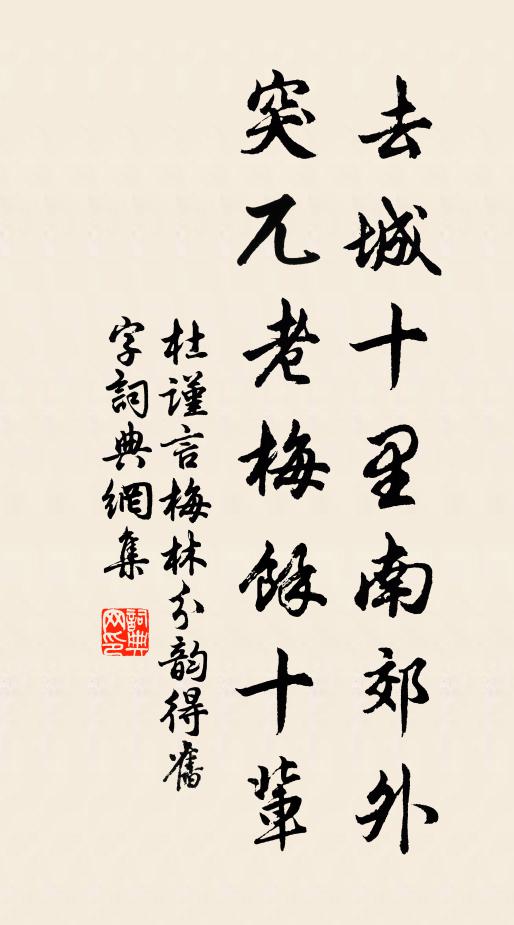 去城十里南郊外
突兀老梅餘十輩
杜謹言梅林分韵得舊
字詞典網集
詞典網印